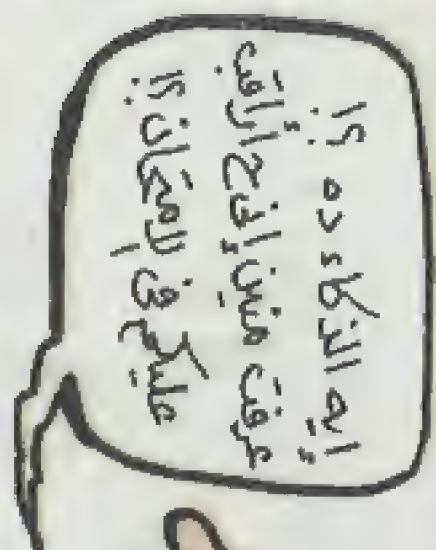 إيه الذكاء ده ؟!
عرفت منين إنى ح أراقب
عليكم فى الامتحان ؟!